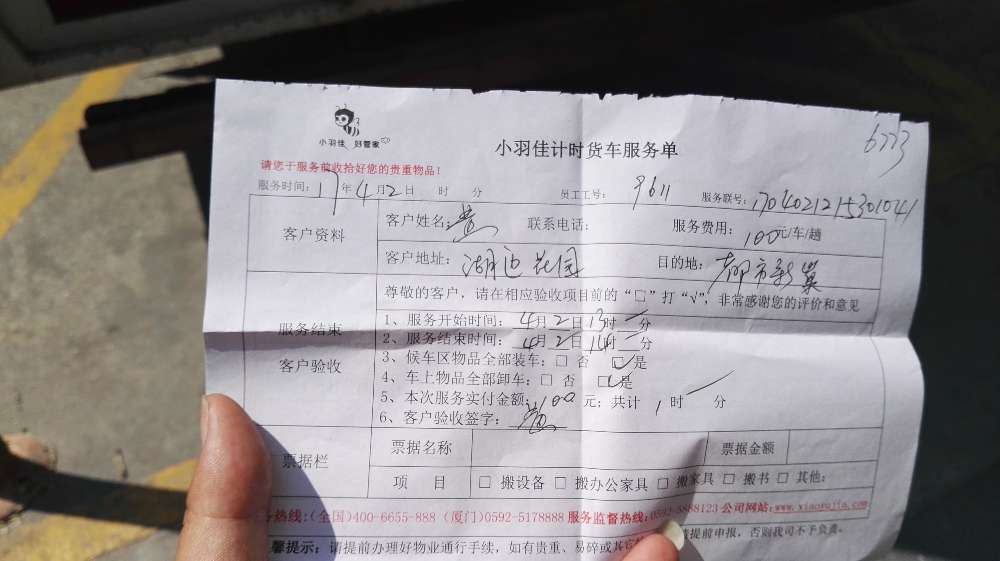 小羽佳 好管家
小羽佳计时货车服务单
6773
请您于服务前收拾好您的贵重物品!
服务时间: 17年4月2日 时 分 员工工号: 9611 服务联号: 1704021215301041
客户资料
客户姓名: 黄 联系电话: 服务费用: 100元/车/趟
客户地址: 湖边花园 目的地: 都市新巢
服务结束
客户验收
尊敬的客户, 请在相应验收项目前的“□”打“√”, 非常感谢您的评价和意见
1、服务开始时间: 4月2日13时 分
2、服务结束时间: 4月2日14时 分
3、候车区物品全部装车: □ 否 □是
4、车上物品全部卸车: □ 否 □是
5、本次服务实付金额: 100 元; 共计 1 时 分
6、客户验收签字: 黄
票据栏
票据名称 票据金额
项 目 □ 搬设备 □ 搬办公家具 □ 搬家具 □ 搬书 □ 其他:
务热线: (全国)400-6655-888 (厦门)0592-5178888 服务监督热线: 0592-5888123 公司网站: www.xiaoyujia.com
馨提示: 请提前办理好物业通行手续, 如有贵重、易碎或其它 提前申报, 否则我司不予负责。